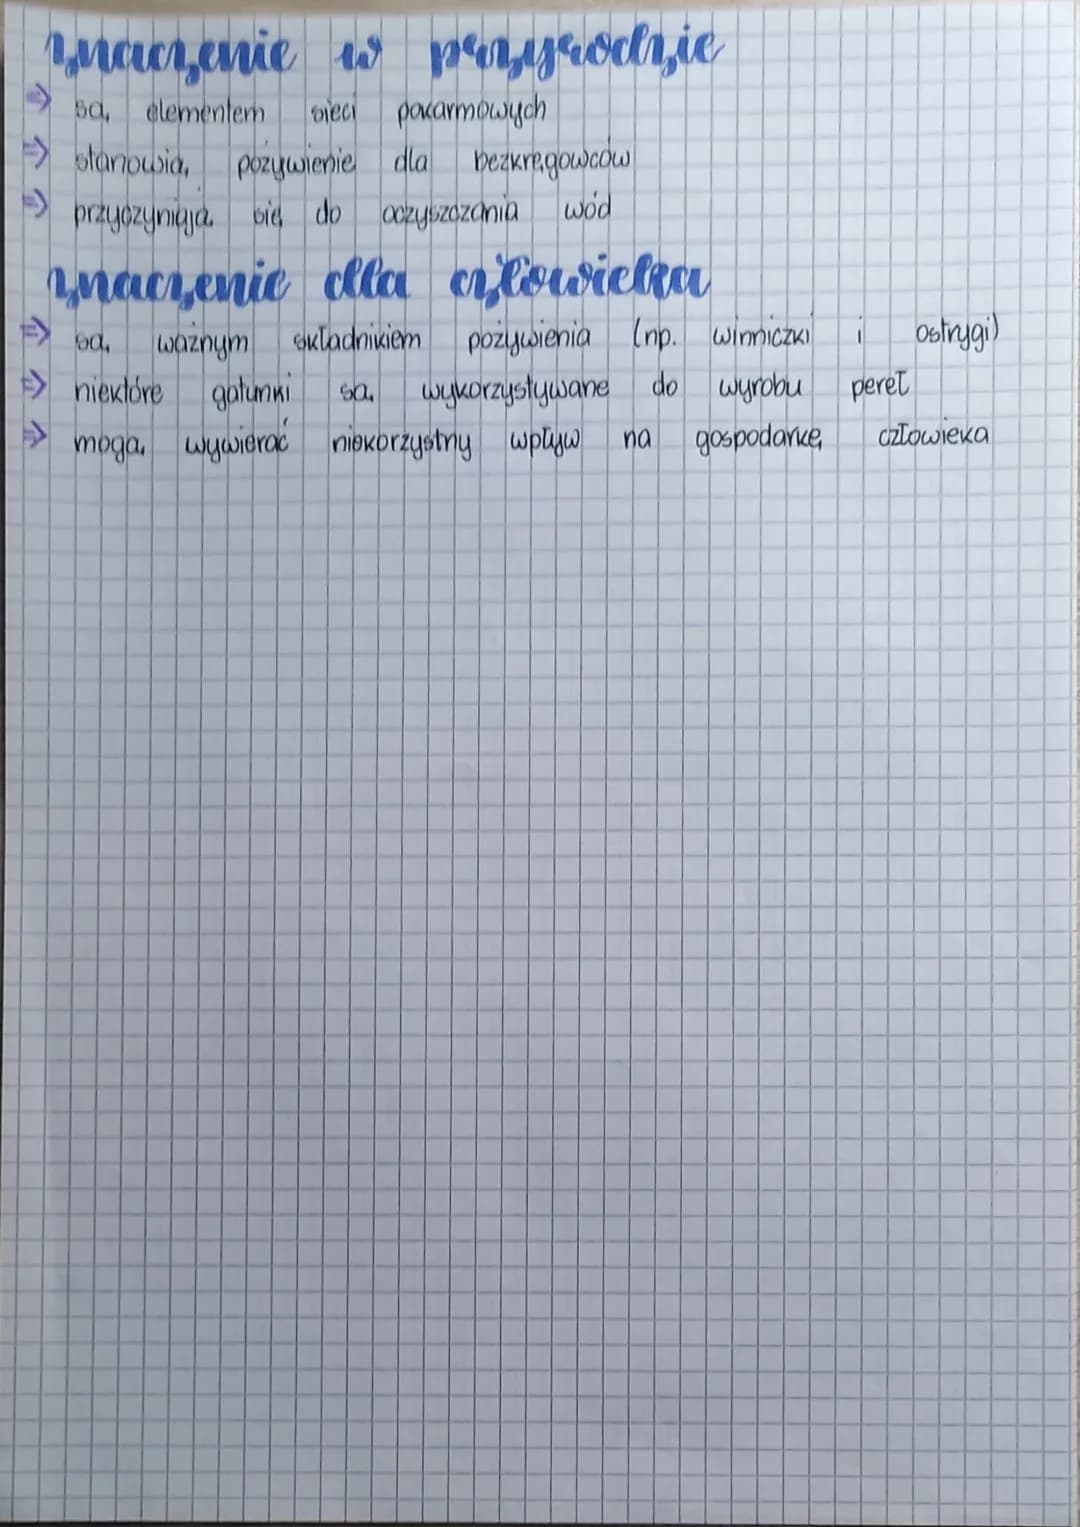 znaczenie w przyrodzie
⇒ są elementem sieci pokarmowych
⇒ stanowią pożywienie dla bezkręgowców
⇒ przyczyniają się do oczyszczania wód
znaczenie dla człowieka
⇒ są ważnym składnikiem pożywienia (np. winniczki i ostrygi)
⇒ niektóre gatunki są wykorzystywane do wyrobu pereł
⇒ mogą wywierać niekorzystny wpływ na gospodarkę człowieka